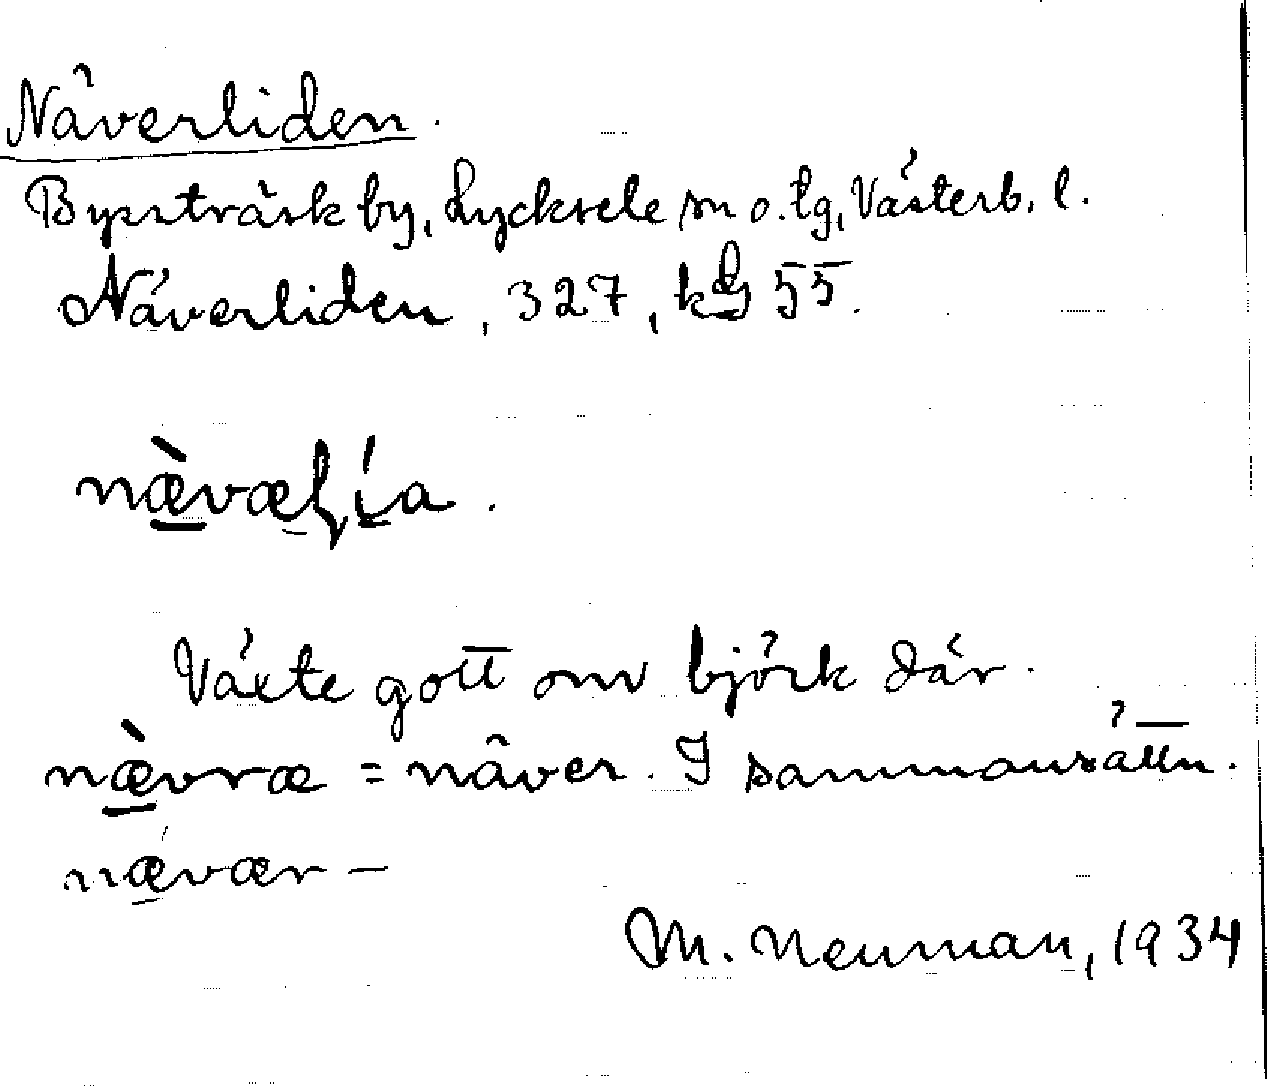 Näverliden.
Byssträsk by, Lycksele sn o. tg, Västerb. l.
Näverliden, 327, kG 55.
nævæ
Växte gott om björk där.
nævræ = näver. I sammansättn.
nævær –
M. Neuman, 1934